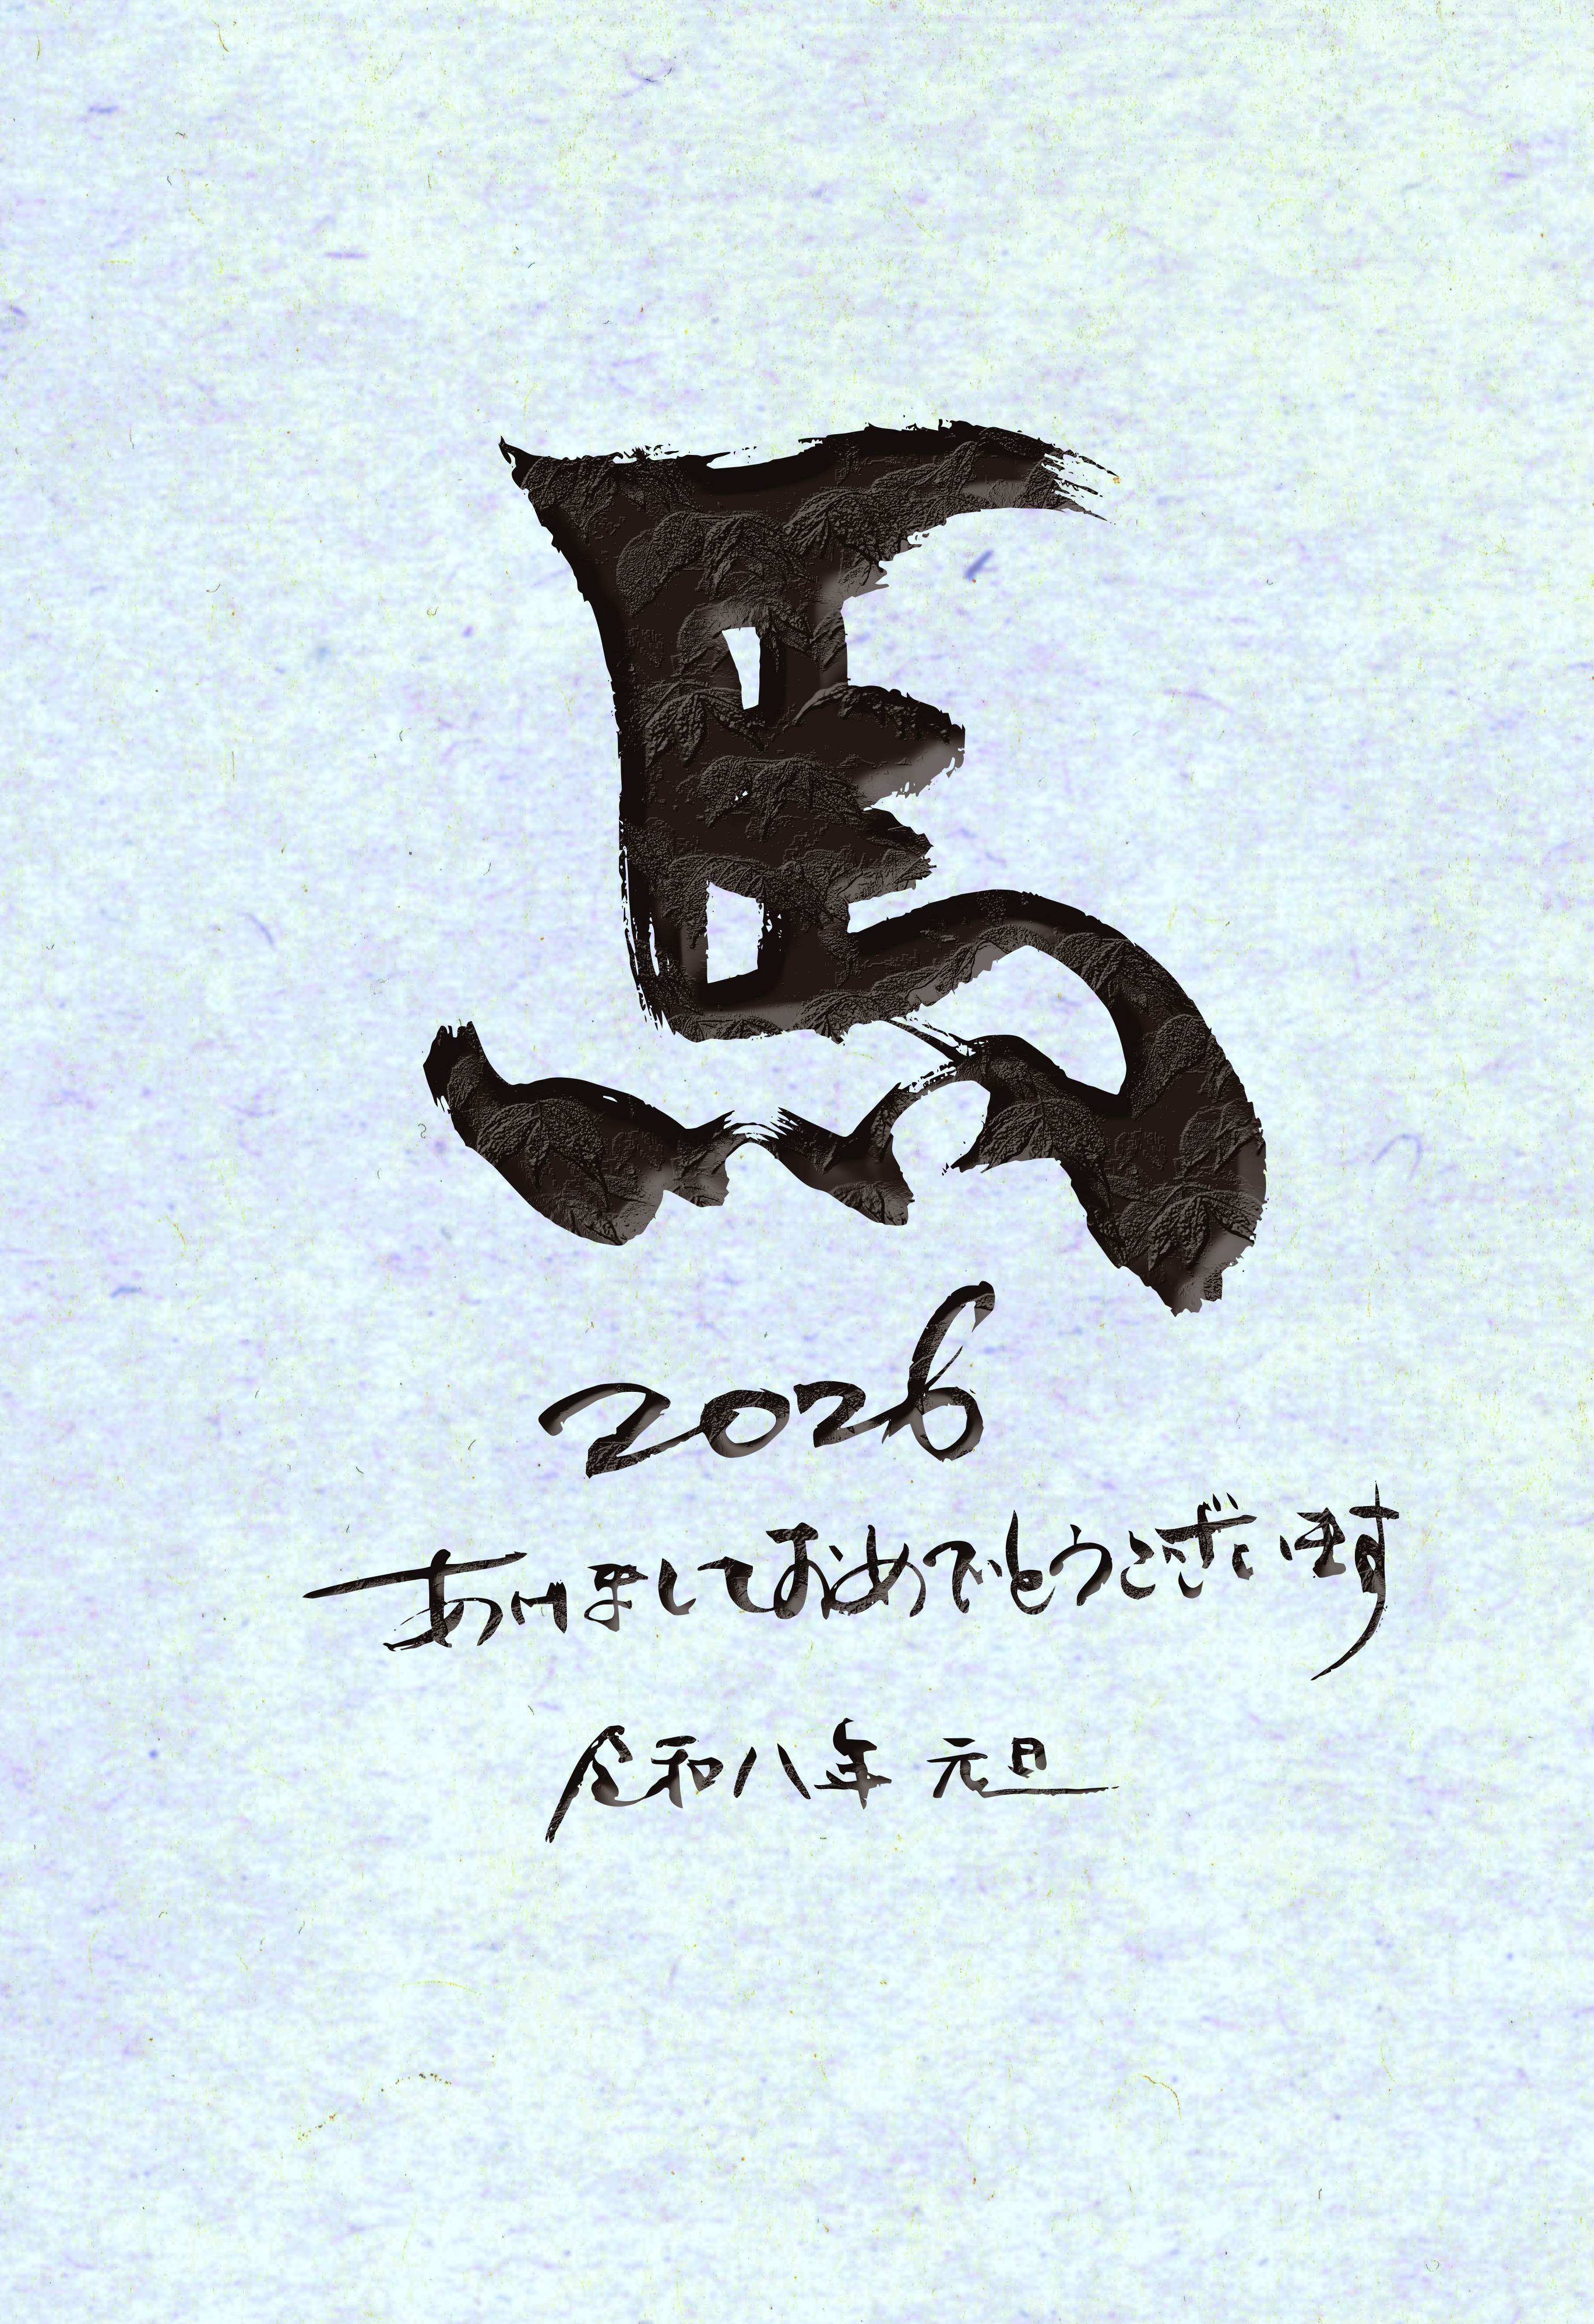 馬
2026
あけましておめでとうございます
令和八年 元旦